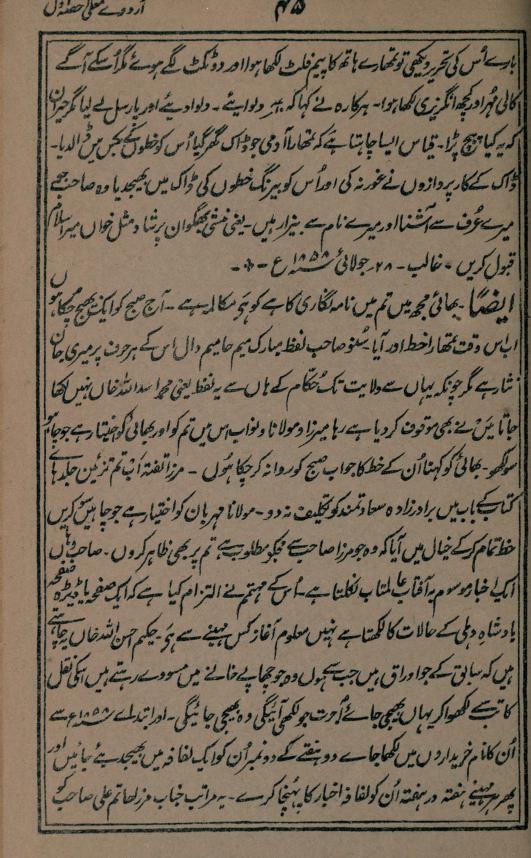 اردوے معلی حصہ اول
۴۵
بارے اُس کی تحریر دیکھی تو تمھارے ہاتھ کا پیم فلٹ لکھا ہوا اور دو ٹکٹ لگے ہوئے مگر اُسکے آگے
کالی مُہر اور کچھ انگریزی لکھا ہوا۔ ہرکارہ نے کہا کہ یہر دلوائیے۔ دلوا دیئے اور پارسل لے لیا مگر حیران
کہ یہ کیا پیچ پڑا۔ قیاس ایسا چاہتا ہے کہ تمھارا آدمی جو ڈاک گھر گیا اُس کو خطوں کے بکس میں ڈالدیا۔
ڈاک کے کارپردازوں نے غور نہ کی اور اُس کو بیرنگ خطوں کی ڈاک میں بھیجدیا وہ صاحب جو
میرے عُرف سے آشنا اور میرے نام سے بیزار ہیں۔ یعنی منشی بھگوان پرشاد مثل خواں میرا سلام
قبول کریں۔ غالب۔ ۲۸۔ جولائی ۱۸۵۸ء
ایضًا بھائی مجھ میں تم میں نامہ نگاری کا ہے کو ہے مکالمہ ہے۔ آج صبح کو ایک بھیج چکا ہوں
اب اس وقت تمھارا خط اور آیا سنو صاحب لفظ مبارک میم حا میم دال اس کے ہر حرف پر میری جان
نثار ہے مگر چونکہ یہاں سے ولایت تک حکام کے ہاں سے یہ لفظ یعنی محمد اسد اللہ خاں نہیں لکھا
جاتا میں نے بھی موقوف کر دیا ہے رہا میرزا و مولانا و نواب اس میں تم کو اور بھائی کو اختیار ہے جو چاہو
سو لکھو۔ بھائی کو کہنا اُن کے خط کا جواب صبح کو روانہ کر چکا ہوں۔ مرزا تفتہ اب تم تزئین جلد ہاے
کتاب کے باب میں برادرزادہ سعادتمند کو تکلیف نہ دو۔ مولانا مہربان کو اختیار ہے جو چاہیں سو کریں
خط تمام کر کے خیال میں آیا کہ وہ جو مرزا صاحب سے مجکو مطلوب ہے تم پر بھی ظاہر کروں۔ صاحب وہاں
ایک اخبار موسوم بہ آفتاب عالمتاب نکلتا ہے۔ اُس کے مہتمم نے التزام کیا ہے کہ ایک صفحہ یا ڈیڑھ صفحہ
بادشاہ دہلی کے حالات کا لکھتا ہے نہیں معلوم آغاز کس مہینے سے ہے۔ حکیم احسن اللہ خاں چاہتے
ہیں کہ سابق کے جو اوراق ہیں جب سے ہوں وہ جو چھاپے خانے میں مسودے رہتے ہیں انکی نقل
کاتب سے لکھوا کر یہاں بھیجی جائے اُجرت جو لکھی آئیگی وہ بھیجی جائیگی۔ اور ابتداے ۱۸۵۸ء سے
اُن کا نام خریداروں میں لکھا جاے دو ہفتے کے دو نمبر اُن کو ایک لفافہ میں بھیجدیئے جائیں اور
پھر ہر مہینے ہفتہ در ہفتہ اُن کو لفافہ اخبار کا پہنچا کرے۔ یہ مراتب جناب مرزا حاتم علی صاحب کو